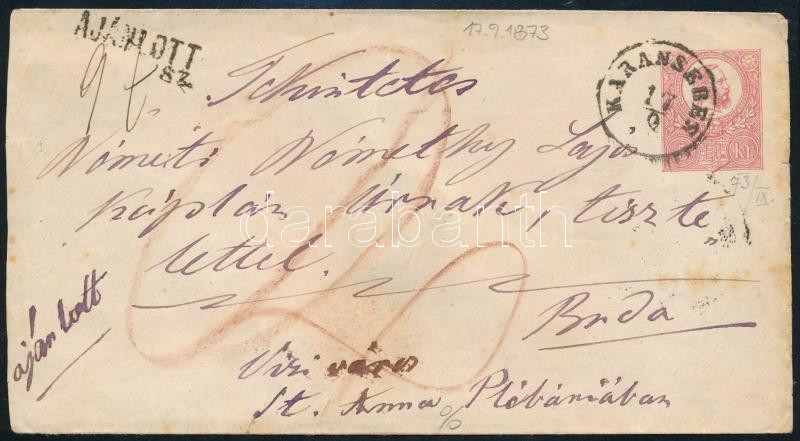 AJÁNLOTT
SZ
17.9.1873
KARANSEBES
17
9
Kr
73/IX.
Tekintetes
Németi Némethy Lajos
káplán Úrnak, tiszte„
lettel.
Buda
ajánlott
Vizi város
St. Anna Plébániában
darabanth